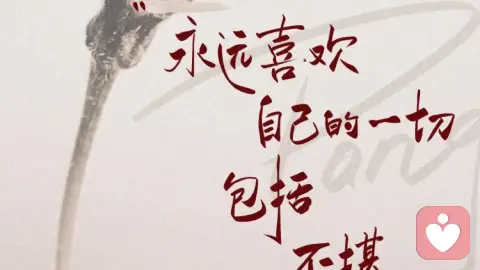 永远喜欢
自己的一切
包括
不堪